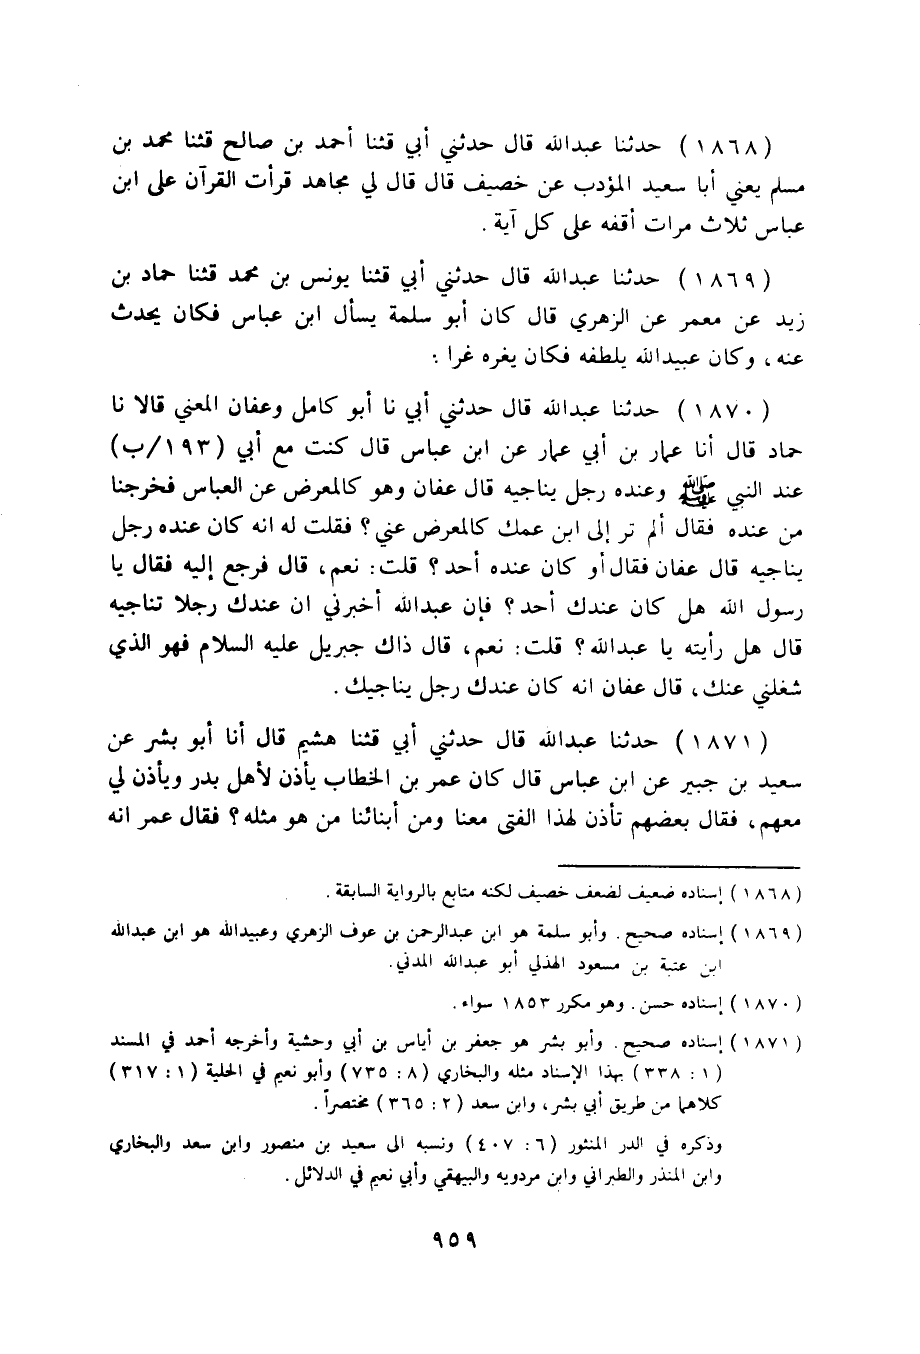 (١٨٦٨) حدثنا عبدالله قال حدثني أبي قثنا أحمد بن صالح قثنا محمد بن
مسلم يعني أبا سعيد المؤدب عن خصيف قال قال لي مجاهد قرأت القرآن على ابن
عباس ثلاث مرات أقفه على كل آية .
(١٨٦٩) حدثنا عبدالله قال حدثني أبي قثنا يونس بن محمد قثنا حماد بن
زيد عن معمر عن الزهري قال كان أبو سلمة يسأل ابن عباس فكان يحدث
عنه ، وكان عبيدالله يلطفه فكان يغره غرا .
(١٨٧٠) حدثنا عبدالله قال حدثني أبي نا أبو كامل وعفان المعني قالا نا
حماد قال أنا عمار بن أبي عمار عن ابن عباس قال كنت مع أبي (١٩٣/ب)
عند النبي ﷺ وعنده رجل يناجيه قال عفان وهو كالمعرض عن العباس فخرجنا
من عنده فقال ألم تر إلى ابن عمك كالمعرض عني ؟ فقلت له انه كان عنده رجل
يناجيه قال عفان فقال أو كان عنده أحد ؟ قلت : نعم ، قال فرجع إليه فقال يا
رسول الله هل كان عندك أحد ؟ فإن عبدالله أخبرني ان عندك رجلا تناجيه
قال هل رأيته يا عبدالله ؟ قلت : نعم ، قال ذاك جبريل عليه السلام فهو الذي
شغلني عنك ، قال عفان انه كان عندك رجل يناجيك .
(١٨٧١) حدثنا عبدالله قال حدثني أبي قثنا هشيم قال أنا أبو بشر عن
سعيد بن جبير عن ابن عباس قال كان عمر بن الخطاب يأذن لأهل بدر ويأذن لي
معهم ، فقال بعضهم تأذن لهذا الفتى معنا ومن أبنائنا من هو مثله ؟ فقال عمر انه
(١٨٦٨) إسناده ضعيف لضعف خصيف لكنه متابع بالرواية السابقة .
(١٨٦٩) إسناده صحيح . وأبو سلمة هو ابن عبدالرحمن بن عوف الزهري وعبيدالله هو ابن عبدالله
ابن عتبة بن مسعود الهذلي أبو عبدالله المدني .
(١٨٧٠) إسناده حسن . وهو مكرر ١٨٥٣ سواء .
(١٨٧١) إسناده صحيح . وأبو بشر هو جعفر بن أياس بن أبي وحشية وأخرجه أحمد في المسند
(١ : ٣٣٨) بهذا الإسناد مثله والبخاري (٨ : ٧٣٥) وأبو نعيم في الحلية (١ : ٣١٧)
كلاهما من طريق أبي بشر ، وابن سعد (٢ : ٣٦٥) مختصراً .
وذكره في الدر المنثور (٦ : ٤٠٧) ونسبه الى سعيد بن منصور وابن سعد والبخاري
وابن المنذر والطبراني وابن مردويه والبيهقي وأبي نعيم في الدلائل .
٩٥٩